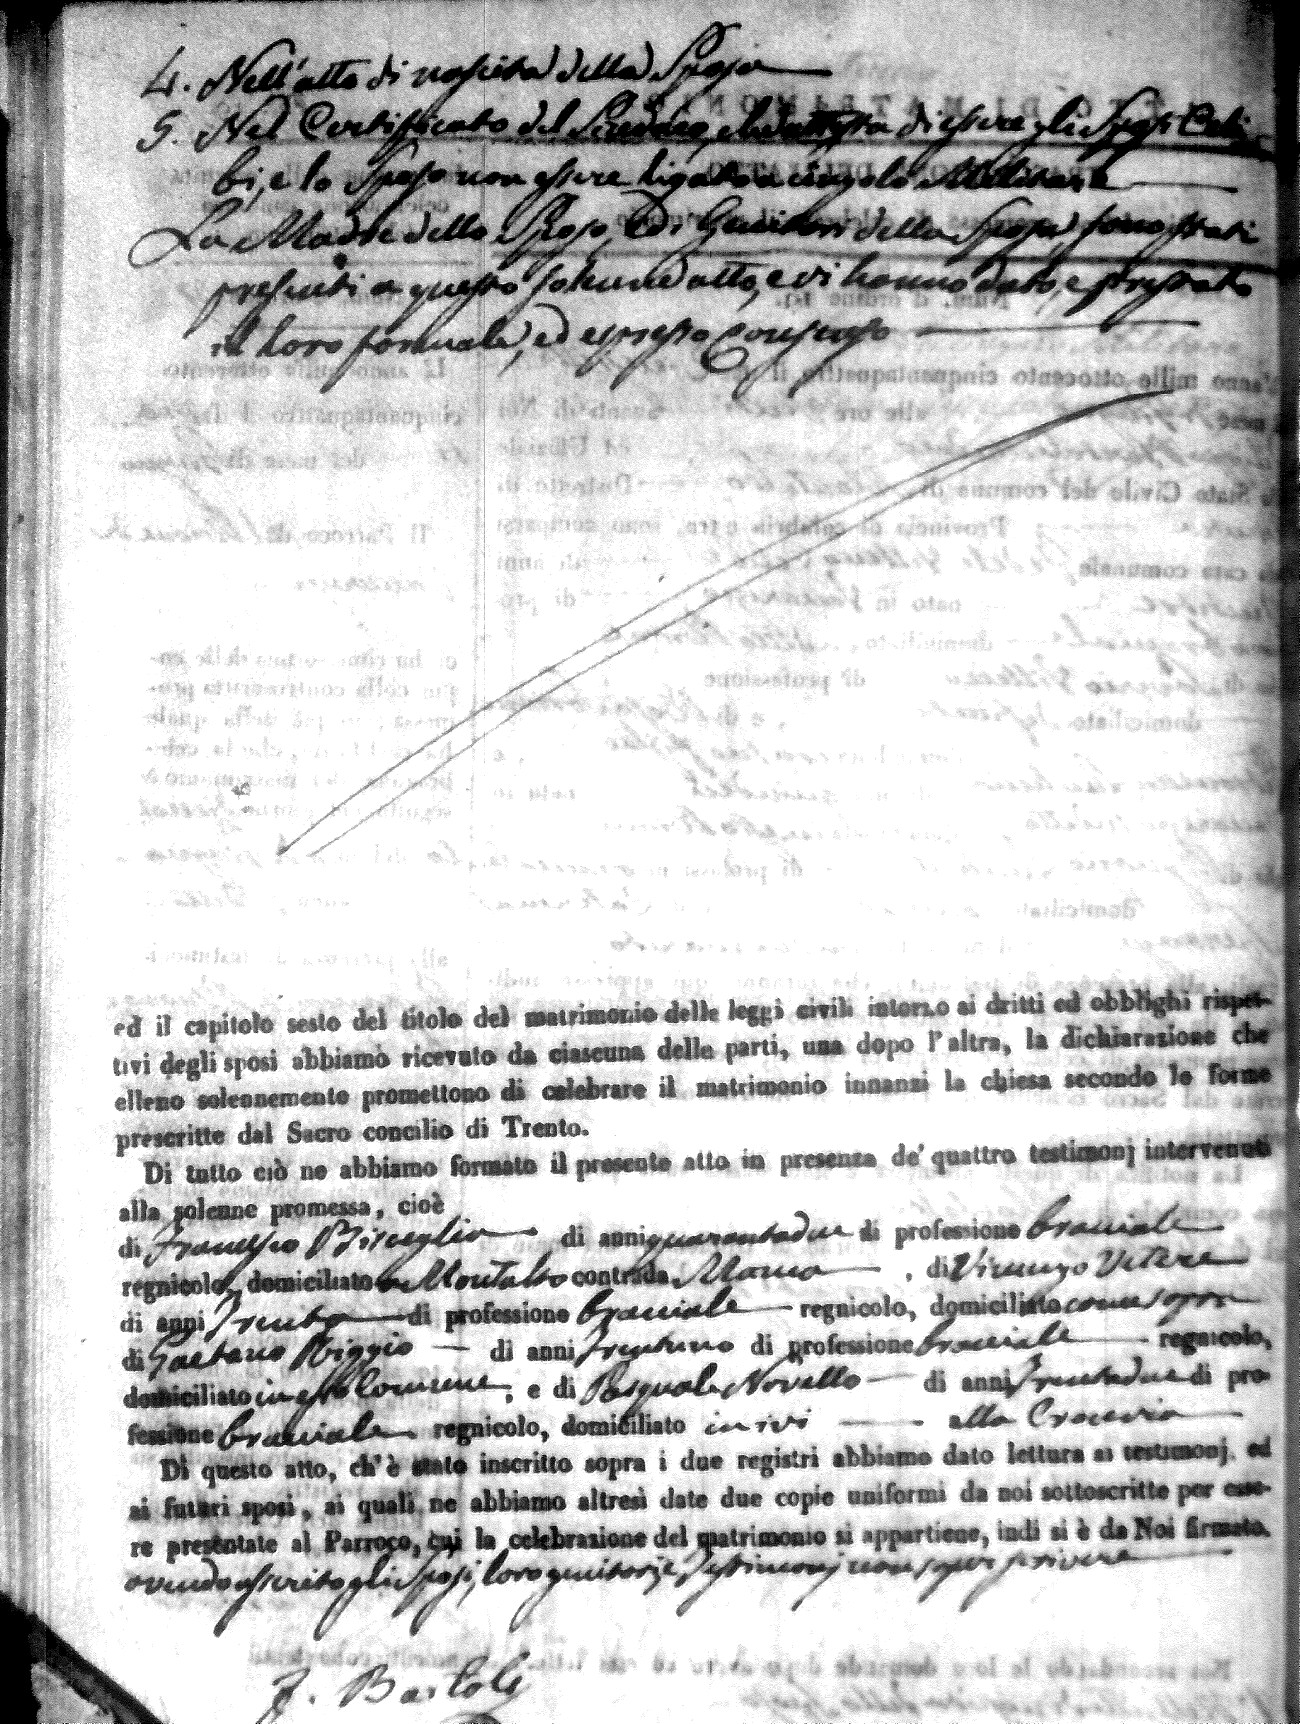 4. Nell'atto di nascita della Sposa
5. Nel Certificato del Sindaco, che attesta di essere gli Sposi Celi-
bi, e lo Sposo non essere ligato a cingolo Militare
La Madre dello Sposo, ed i Genitori della Sposa sono stati
presenti a questo solenne atto, e vi hanno dato, e prestato
il loro formale, ed espresso Consenso
ed il capitolo sesto del titolo del matrimonio delle leggi civili intorno ai dritti ed obblighi rispet-
tivi degli sposi abbiamo ricevuto da ciascuna delle parti, una dopo l'altra, la dichiarazione che
elleno solennemente promettono di celebrare il matrimonio innanzi la chiesa secondo le forme
prescritte dal Sacro concilio di Trento.
Di tutto ciò ne abbiamo formato il presente atto in presenza de' quattro testimonj intervenuti
alla solenne promessa, cioè
di Francesco Bisceglia di anni quarantadue di professione bracciale
regnicolo, domiciliato in Montalto contrada, di Vincenzo Vitere
di anni Trenta di professione bracciale regnicolo, domiciliato come sopra
di Gaetano Riggio di anni trentuno di professione bracciale regnicolo,
domiciliato in esso Comune, e di Pasquale Novello di anni Trentadue di pro-
fessione bracciale regnicolo, domiciliato in ivi alla
Di questo atto, ch'è stato inscritto sopra i due registri abbiamo dato lettura ai testimonj. ed
ai futuri sposi, ai quali ne abbiamo altresì date due copie uniformi da noi sottoscritte per esse-
re presentate al Parroco, cui la celebrazione del matrimonio si appartiene, indi si è da Noi firmato.
avendo asserito gli Sposi, loro genitori, e Testimonj non saper scrivere